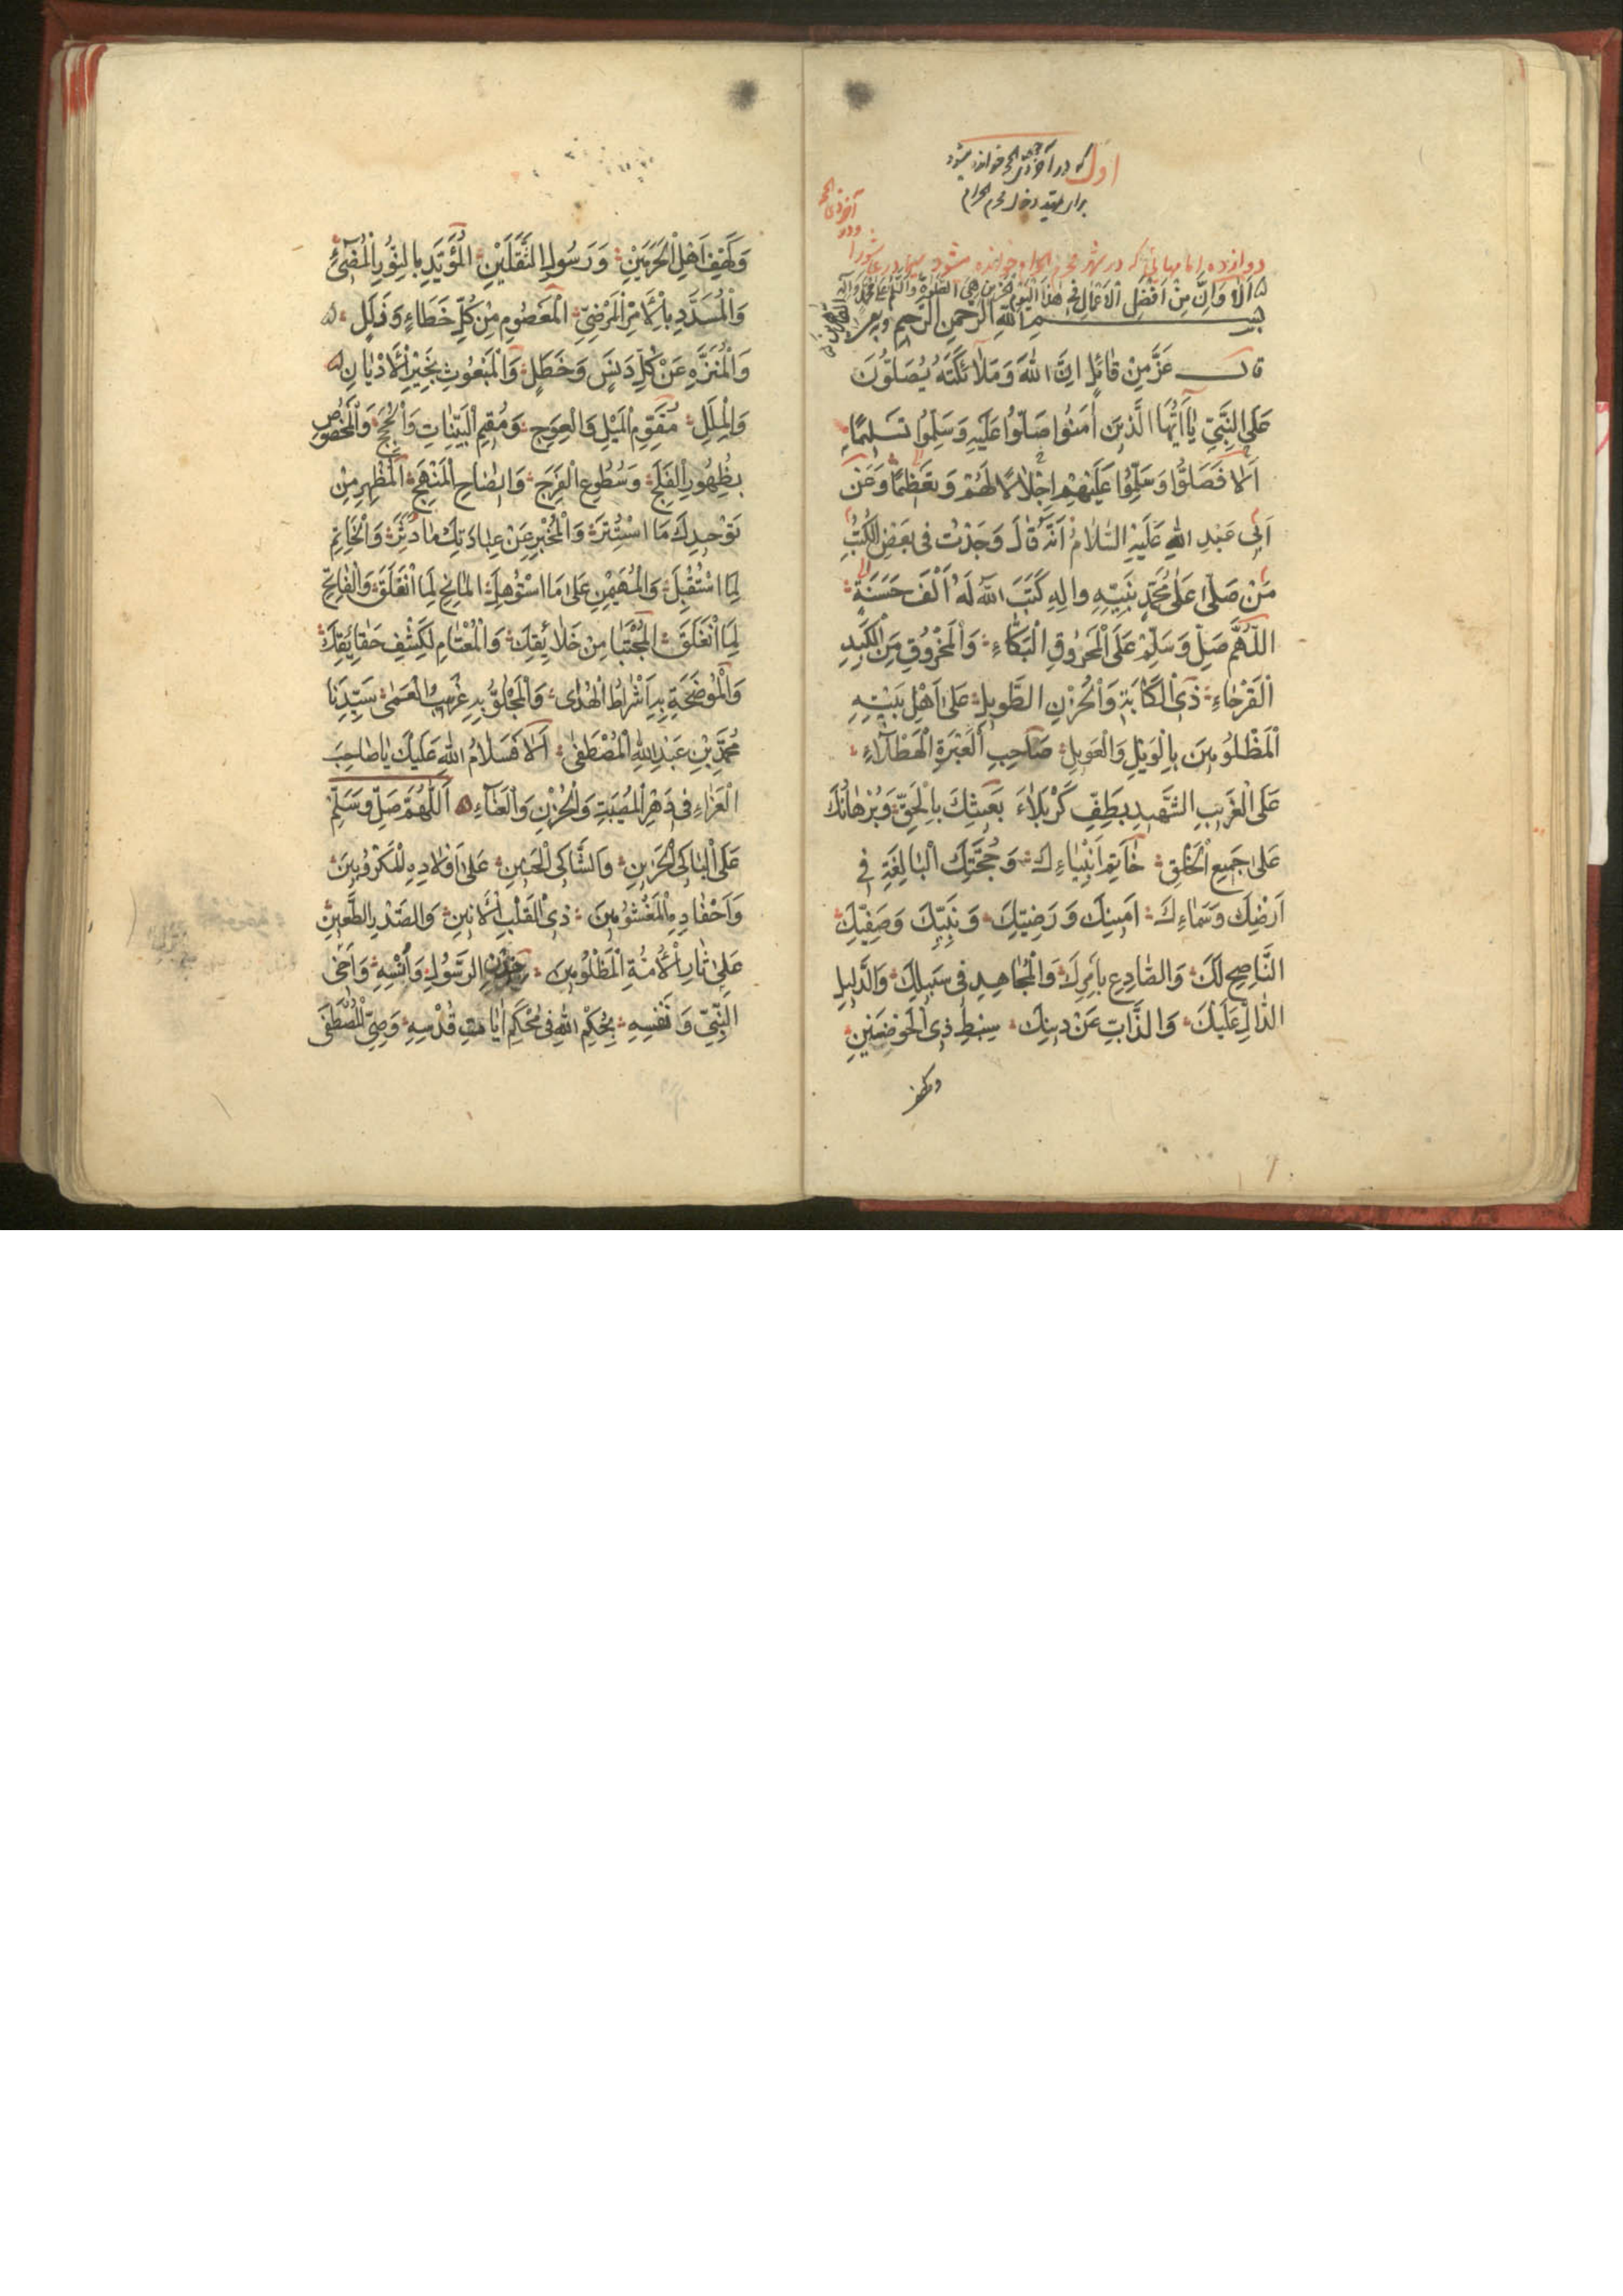 اول که در آخر ذی الحجه خوانده میشود
برای محرم الحرام
آخر ذی الحجه
و در
دوازده امامهائیکه در شهر محرم الحرام خوانده میشود در عاشورا
اَلا وَاِنَّ مِنْ اَفْضَلِ الْاَعْمالِ فی هذَا الْیَوْمِ الصَّلوةُ
بِسْمِ اللهِ الرَّحْمنِ الرَّحیمِ
قال عَزَّ مِنْ قائِلٍ اِنَّ اللهَ وَمَلائِکَتَهُ یُصَلُّونَ
عَلَی النَّبِیِّ یا اَیُّهَا الَّذینَ آمَنُوا صَلُّوا عَلَیْهِ وَسَلِّمُوا تَسْلیمًا
اَلا فَصَلُّوا وَسَلِّمُوا عَلَیْهِمْ اِجْلالًا لَهُمْ وَتَعْظیمًا وَعَنْ
اَبی عَبْدِ اللهِ عَلَیْهِ السَّلامُ اَنَّهُ قالَ وَجَدْتُ فی بَعْضِ الْکُتُبِ
مَنْ صَلّی عَلی مُحَمَّدٍ نَبِیِّهِ والِهِ کَتَبَ اللهُ لَهُ اَلْفَ حَسَنَةٍ
اللّهُمَّ صَلِّ وَسَلِّمْ عَلَی الْمَحْرُوقِ الْبَکّاءِ وَالْمَحْرُوقِ مِنَ الْکَبِدِ
الْقَرْحاءِ ذِی الْکَابَةِ وَالْحُزْنِ الطَّویلِ عَلی اَهْلِ بَیْتِهِ
الْمَظْلُومینَ بِالْوَیْلِ وَالْعَویلِ صاحِبِ الْعَبْرَةِ الْهَطْلاءِ
عَلَی الْغَریبِ الشَّهیدِ بِطَفِّ کَرْبَلاءَ بَعیثِکَ بِالْحَقِّ وَبُرْهانِکَ
عَلی جَمیعِ الْخَلْقِ خاتِمِ اَنْبِیاءِکَ وَحُجَّتِکَ الْبالِغَةِ فی
اَرْضِکَ وَسَماءِکَ اَمینِکَ وَرَضِیِّکَ وَنَبِیِّکَ وَصَفِیِّکَ
النّاصِحِ لَکَ وَالصّادِعِ بِاَمْرِکَ وَالْمُجاهِدِ فی سَبیلِکَ وَالدَّلیلِ
الدّالِّ عَلَیْکَ وَالذّابِّ عَنْ دینِکَ سِبْطِ ذِی الْحَوْضَیْنِ
وکهف
وَکَهْفِ اَهْلِ الْحَرَمَیْنِ وَرَسُولِ الثَّقَلَیْنِ الْمُؤَیَّدِ بِالنُّورِ الْمُضیءِ
وَالْمُسَدَّدِ بِالْاَمْرِ الْمَرْضِیِّ الْمَعْصُومِ مِنْ کُلِّ خَطاءٍ وَزَلَلٍ
وَالْمُنَزَّهِ عَنْ کُلِّ دَنَسٍ وَخَطَلٍ وَالْمَبْعُوثِ بِخَیْرِ الْاَدْیانِ
وَالْمِلَلِ مُقَوِّمِ الْمَیْلِ وَالْعِوَجِ وَمُقیمِ الْبَیِّناتِ وَالْحُجَجِ وَالْمَخْصُوصِ
بِظُهُورِ الْفَلَجِ وَسُطُوعِ الْفَرَجِ وَایضاحِ الْمَنْهَجِ الْمُظْهِرِ مِنْ
تَوْحیدِکَ مَا اسْتُتِرَ وَالْمُخْبِرِ عَنْ عِبادَتِکَ ما دُثِّرَ وَالْخاتِمِ
لِمَا اسْتُقْبِلَ وَالْمُهَیْمِنِ عَلی مَا اسْتُؤْهِلَ الْمانِحِ لِمَا انْغَلَقَ وَالْفاتِحِ
لِمَا انْغَلَقَ الْمُجْتَبا مِنْ خَلائِقِکَ وَالْمُعْتامِ لِکَشْفِ حَقائِقِکَ
وَالْمُوضَحَةِ بِهِ اَشْراطُ الْهُدی وَالْمَجْلُوِّ بِهِ غِرْبیبُ الْعَمی سَیِّدِنا
مُحَمَّدِ بْنِ عَبْدِ اللهِ الْمُصْطَفی اَلا فَسَلامُ اللهِ عَلَیْکَ یا صاحِبَ
الْعَزاءِ فی دَهْرِ الْمُصیبَةِ وَالْحُزْنِ وَالْعَناءِ اَللّهُمَّ صَلِّ وَسَلِّمْ
عَلَی الْباکِی الْحَزینِ وَالشّاکِی الْحَنینِ عَلی اَوْلادِهِ الْمَکْرُوبینَ
وَاَحْفادِهِ الْمَغْشُومینَ ذِی الْقَلْبِ الْاَنینِ وَالصَّدْرِ الطَّعینِ
عَلی ثارِ الْاَئِمَّةِ الْمَظْلُومینَ خِدْنِ الرَّسُولِ وَاُنْسِهِ وَاَخِی
النَّبِیِّ وَنَفْسِهِ بِحُکْمِ اللهِ فی مُحْکَمِ ایاتِ قُدْسِهِ وَصِیِّ الْمُصْطَفَی